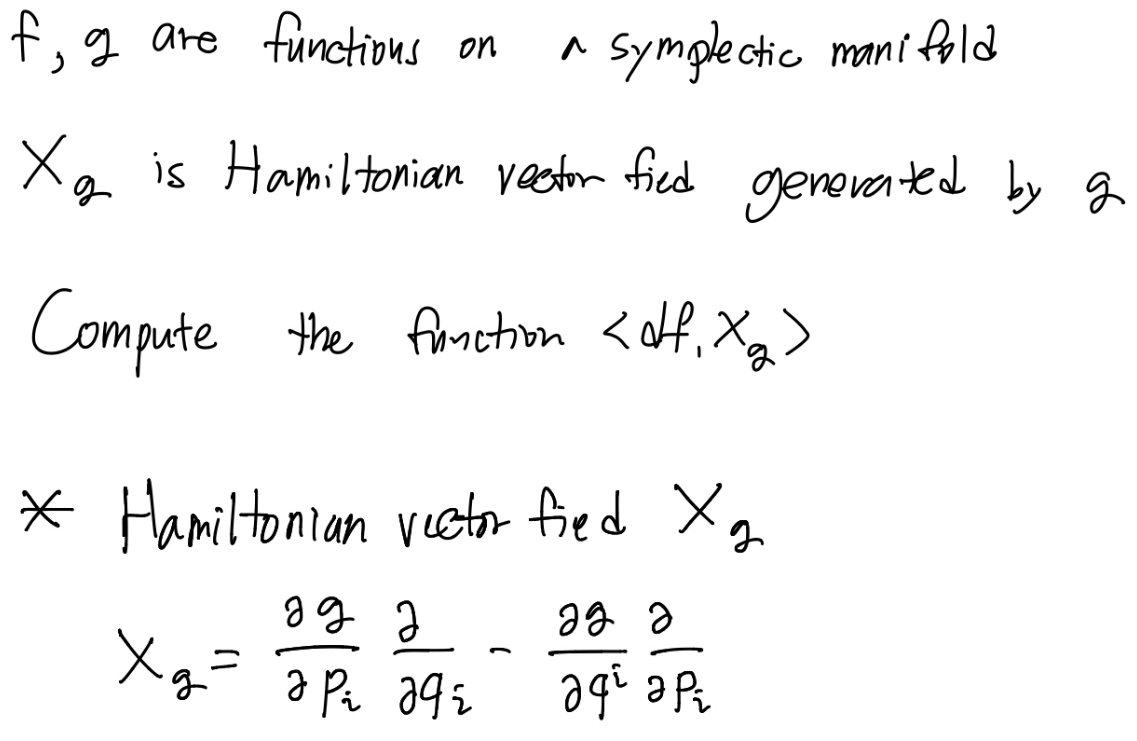 f, g are functions on a symplectic manifold
X_g is Hamiltonian vector fied generated by g
Compute the function <df, X_g>
* Hamiltonian vector fied X_g
X_g = ∂g/∂p_i ∂/∂q_i - ∂g/∂q^i ∂/∂p_i